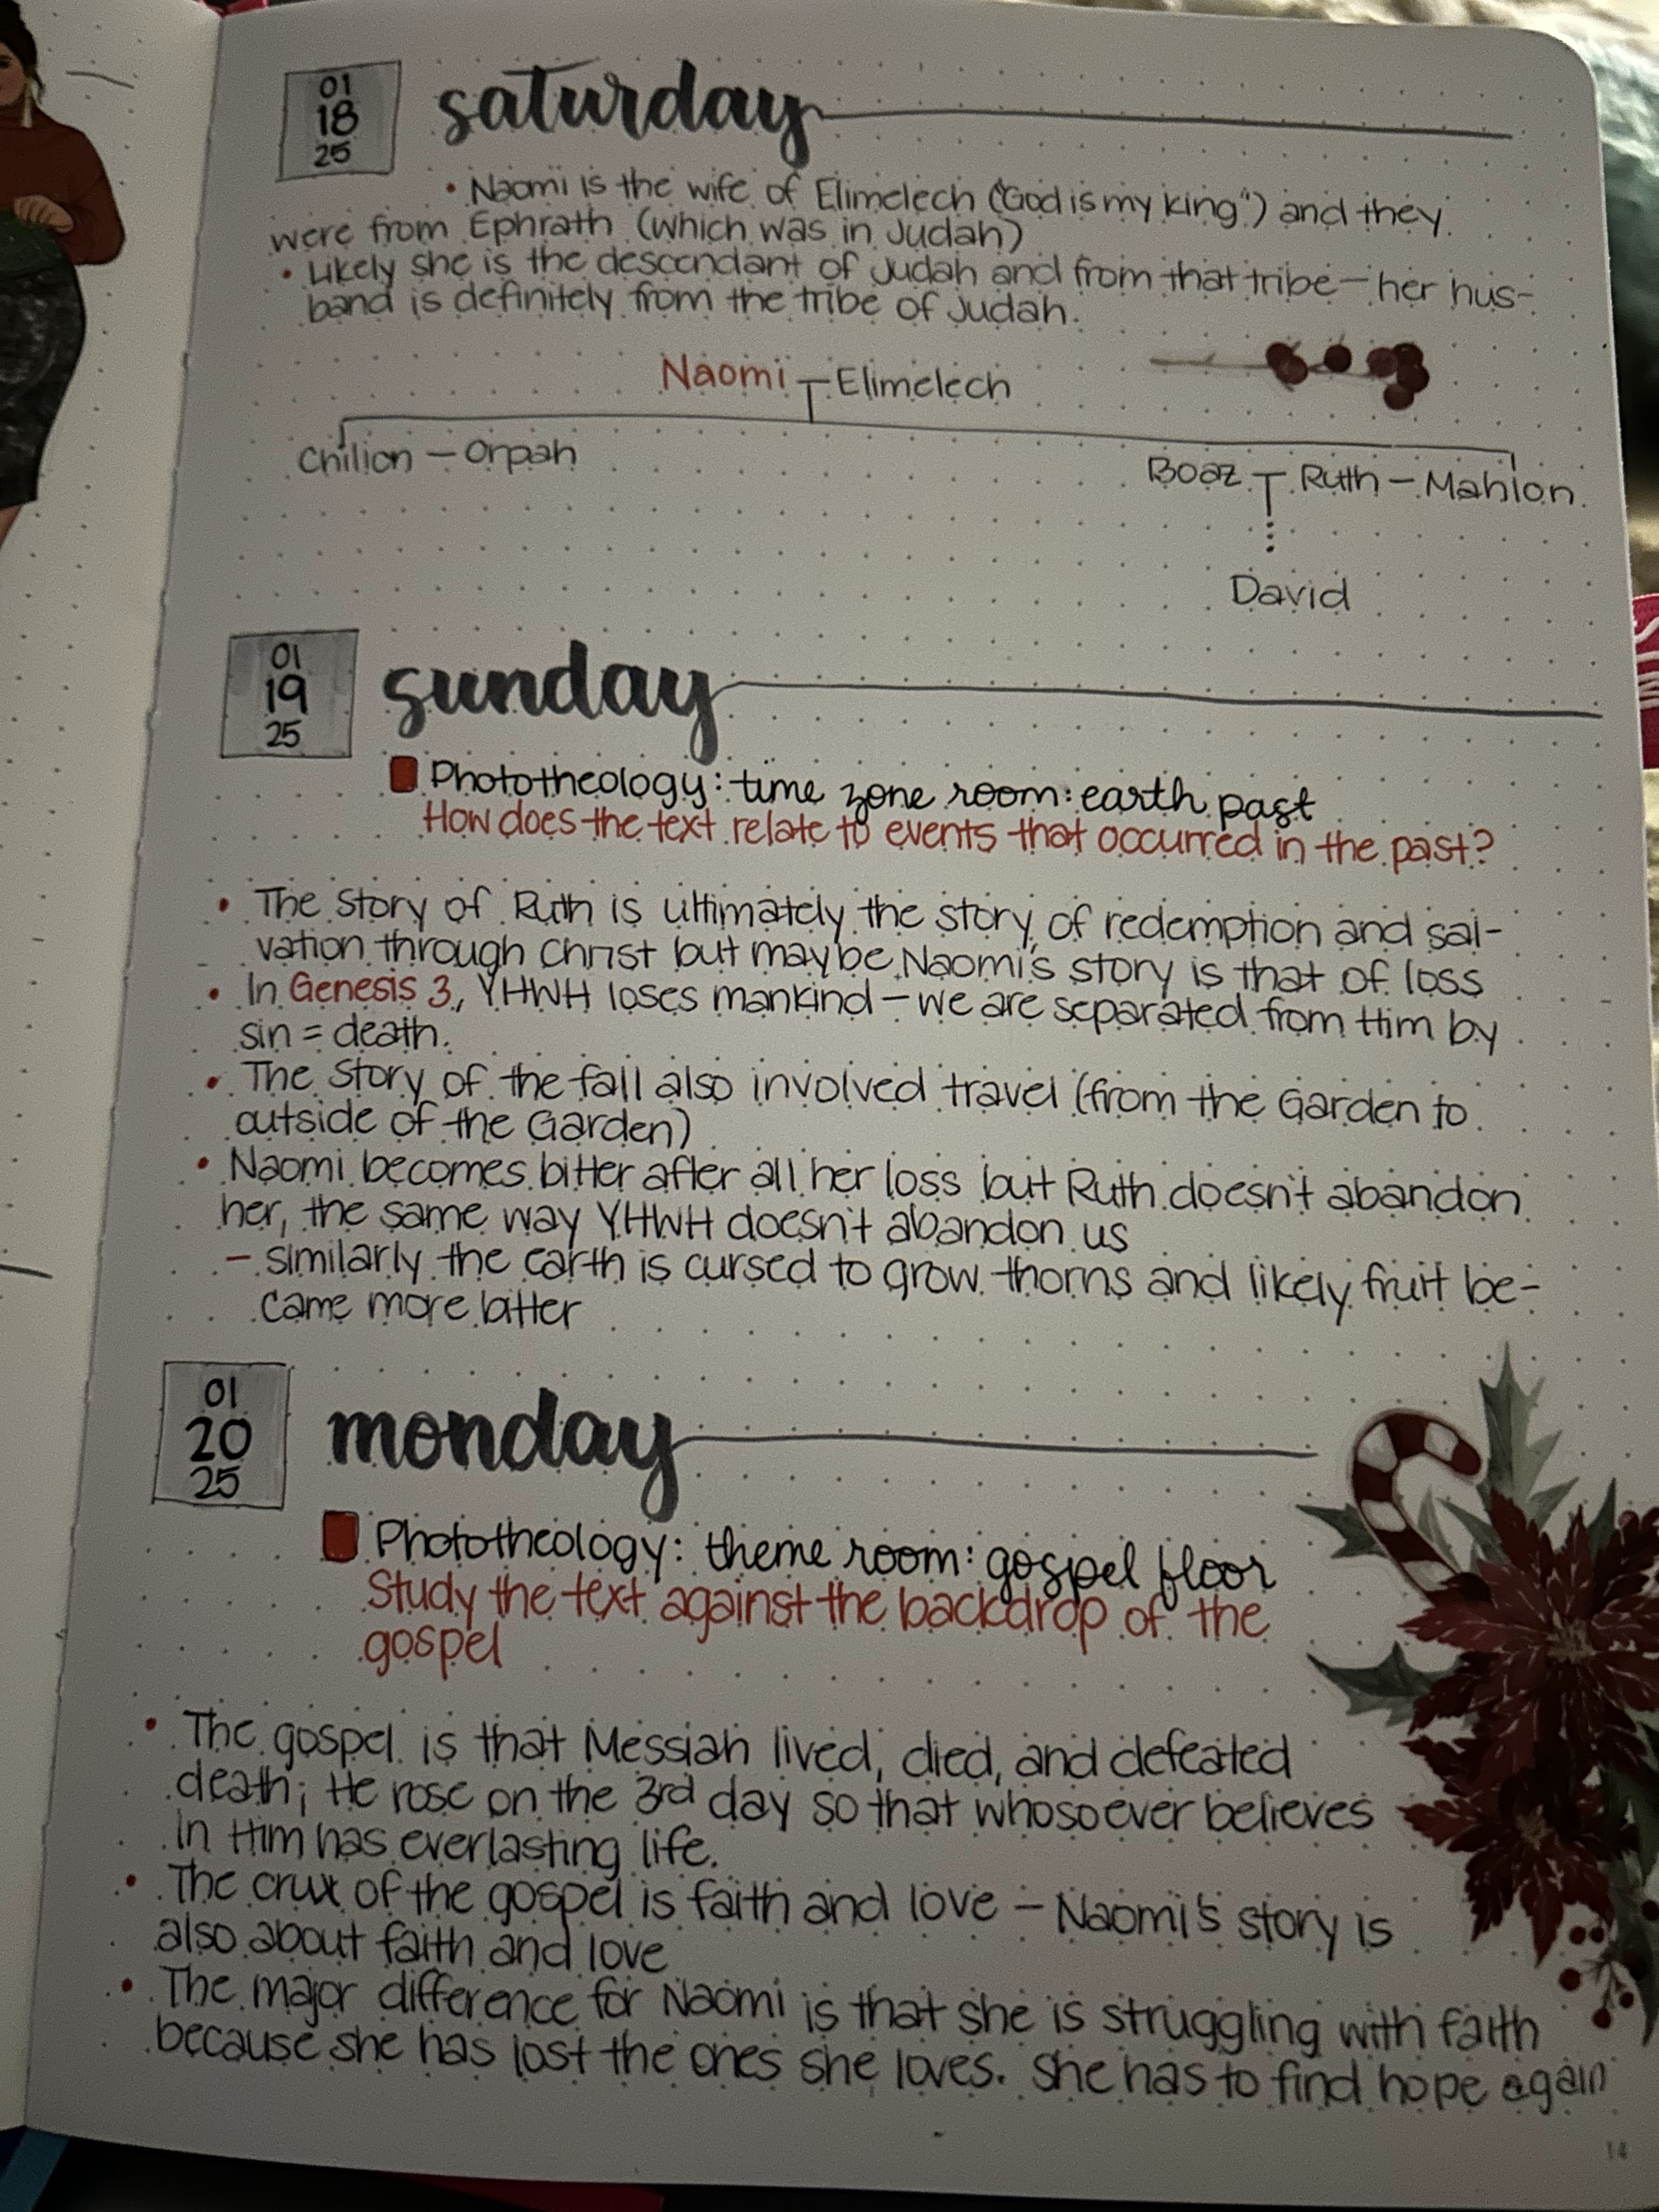 01
18
25
saturday
• Naomi is the wife of Elimelech ("God is my king") and they
were from Ephrath (which was in Judah)
• Likely she is the descendant of Judah and from that tribe – her hus-
band is definitely from the tribe of Judah.
Naomi Elimelech
Chilion – Orpah
Boaz Ruth – Mahlon
David
01
19
25
sunday
Phototheology: time zone room: earth past
How does the text relate to events that occurred in the past?
• The story of Ruth is ultimately the story of redemption and sal-
vation through Christ but maybe Naomi's story is that of loss
• In Genesis 3, YHWH loses mankind – we are separated from Him by
sin = death.
• The story of the fall also involved travel (from the Garden to
outside of the Garden)
• Naomi becomes bitter after all her loss but Ruth doesn't abandon
her, the same way YHWH doesn't abandon us
– similarly the earth is cursed to grow thorns and likely fruit be-
came more bitter
01
20
25
monday
Phototheology: theme room: gospel floor
Study the text against the backdrop of the
gospel
• The gospel is that Messiah lived, died, and defeated
death; He rose on the 3rd day so that whosoever believes
in Him has everlasting life.
• The crux of the gospel is faith and love – Naomi's story is
also about faith and love
• The major difference for Naomi is that she is struggling with faith
because she has lost the ones she loves. She has to find hope again
14